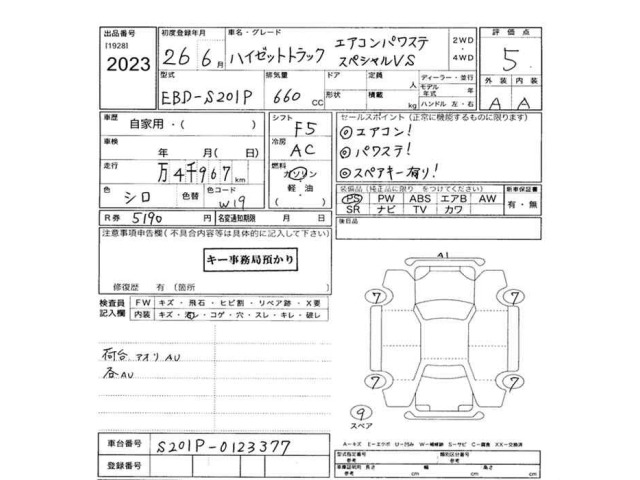 出品番号 初度登録年月 車名・グレード 評価点
[1928] 26年6月 ハイゼットトラック エアコンパワステ 2WD・4WD 5
2023 スペシャルVS
型式 排気量 ドア 定員 ディーラー・並行 外装 内装
人 モデル年式 年
EBD-S201P 660 CC 形状 積載 kg ハンドル 左・右 A A
車歴 自家用・( ) シフト F5 セールスポイント(正常に機能するものに限ります)
車検 年 月( 日) 冷房 AC ◎エアコン!
走行 万4千967km 燃料 ガソリン ◎パワステ!
軽油・( ) ◎スペアキー有り!
色 シロ 色替 色コード W19
装備品(純正品に限り をつけてください) 新車保証書
PS PW ABS エアB AW 有・無
SR ナビ TV カワ
R券 5190円 名変通知期限 月 日 後日品
注意事項申告欄(不具合内容等は具体的に記入して下さい)
キー事務局預かり
修復歴 有(箇所
検査員記入欄 FW キズ・飛石・ヒビ割・リペア跡・X要
内装 キズ・汚レ・コゲ・穴・スレ・キレ・破レ
A1
7 7
荷台 アオリAU
各AU
7 7
9
スペア
A－キズ E－エクボ U－凹み W－補修跡 S－サビ C－腐食 XX－交換済
車台番号 S201P-0123377
型式指定番号 参考 類別区分番号 参考
登録番号
車庫証明寸法 参考 長さ cm 幅 cm 高さ cm